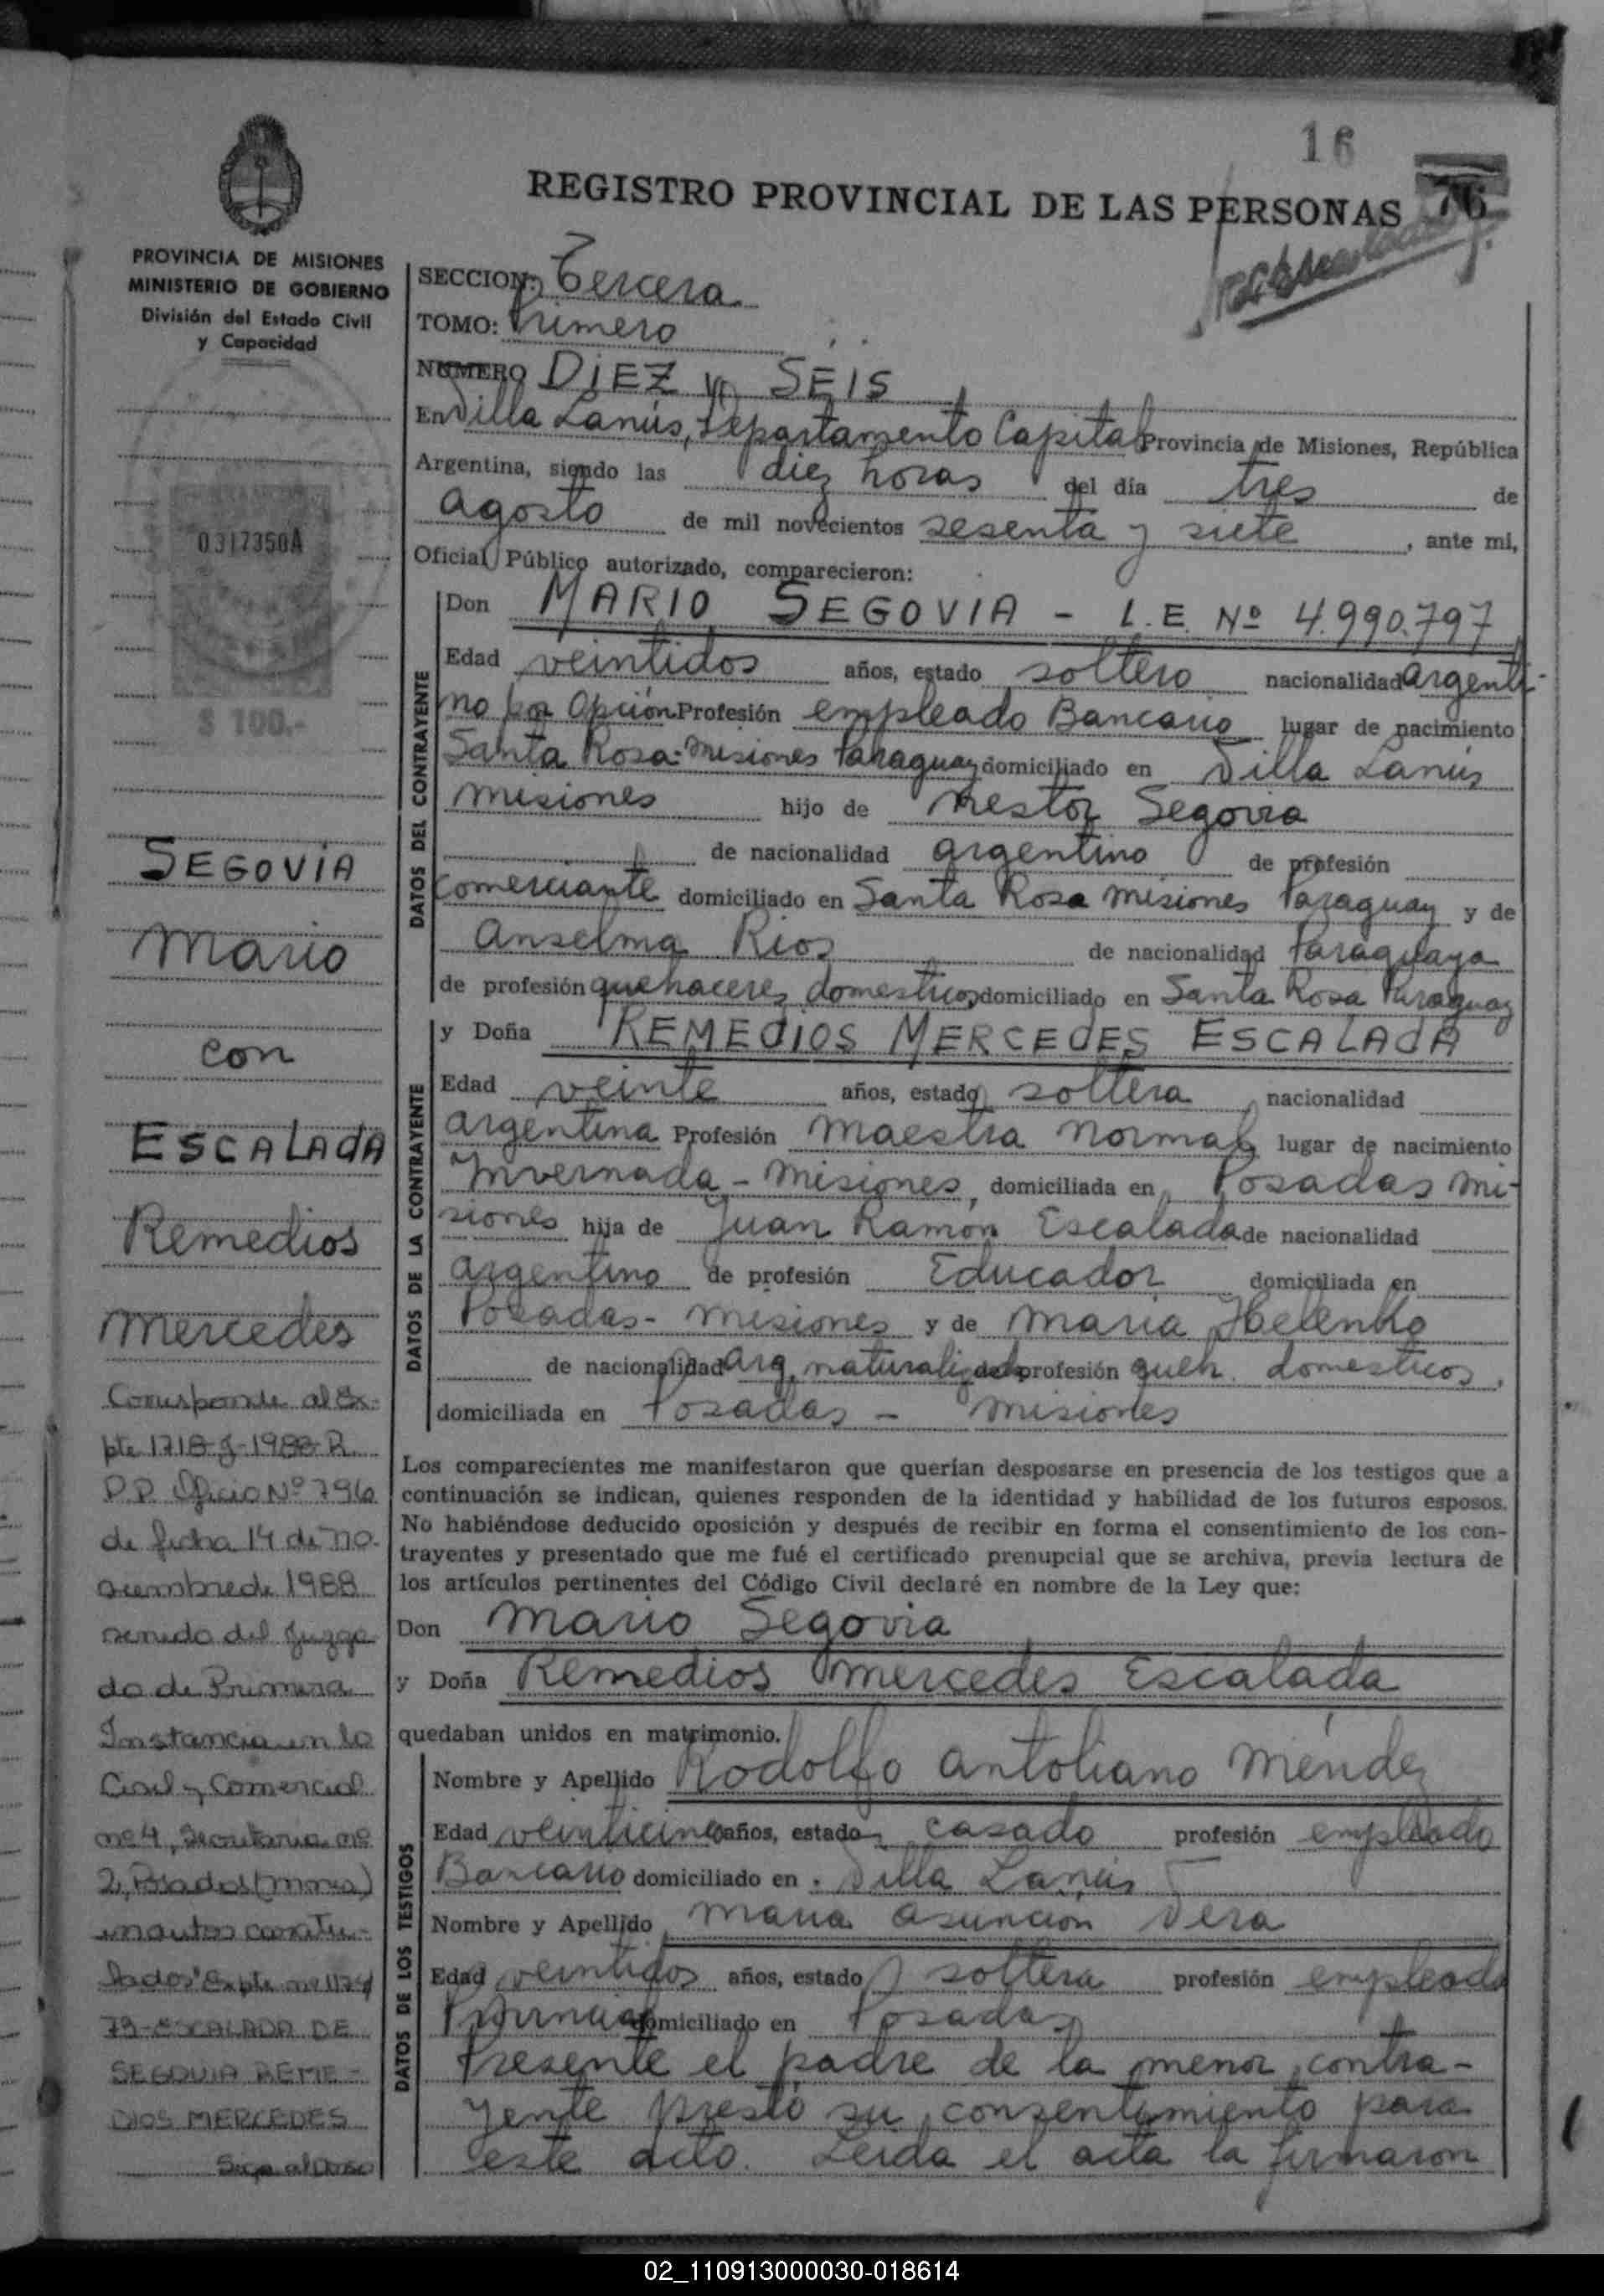 16
REGISTRO PROVINCIAL DE LAS PERSONAS 76
PROVINCIA DE MISIONES
MINISTERIO DE GOBIERNO
División del Estado Civil
y Capacidad
0317350A
$ 100.-
SEGOVIA
Mario
con
ESCALADA
Remedios
Mercedes
Corresponde al Ex-
pte 1718-J-1988-R.
P.P. Oficio Nº 796
de fecha 14 de no-
viembre de 1988
venido del Juzga-
do de Primera
Instancia en lo
Civil y Comercial
nº 4, Secretaria nº
2, Posadas (Mnes)
en autos caratu-
lados "Expte nº 1174
79-ESCALADA DE
SEGOVIA REME-
DIOS MERCEDES
Sigue al Dorso
SECCION: Tercera
TOMO: Primero
NUMERO DIEZ y SEIS
En Villa Lanús, Departamento Capital Provincia de Misiones, República
Argentina, siendo las diez horas del día tres de
agosto de mil novecientos sesenta y siete, ante mi,
Oficial Público autorizado, comparecieron:
DATOS DEL CONTRAYENTE
Don MARIO SEGOVIA - L.E. Nº 4.990.797
Edad veintidos años, estado soltero nacionalidad argenti-
no por Opción Profesión empleado Bancario lugar de nacimiento
Santa Rosa-Misiones Paraguay domiciliado en Villa Lanús
Misiones hijo de Nestor Segovia
de nacionalidad argentino de profesión
Comerciante domiciliado en Santa Rosa Misiones Paraguay y de
Anselma Rios de nacionalidad Paraguaya
de profesión quehaceres domesticos domiciliado en Santa Rosa Paraguay
DATOS DE LA CONTRAYENTE
y Doña REMEDIOS MERCEDES ESCALADA
Edad veinte años, estado soltera nacionalidad
argentina Profesión Maestra Normal lugar de nacimiento
Invernada - Misiones, domiciliada en Posadas Mi-
siones hija de Juan Ramon Escalada de nacionalidad
argentino de profesión Educador domiciliada en
Posadas - Misiones y de Maria
de nacionalidad Arg. naturalizada de profesión queh. domesticos,
domiciliada en Posadas - Misiones
Los comparecientes me manifestaron que querían desposarse en presencia de los testigos que a
continuación se indican, quienes responden de la identidad y habilidad de los futuros esposos.
No habiéndose deducido oposición y después de recibir en forma el consentimiento de los con-
trayentes y presentado que me fué el certificado prenupcial que se archiva, previa lectura de
los artículos pertinentes del Código Civil declaré en nombre de la Ley que:
Don Mario Segovia
y Doña Remedios Mercedes Escalada
quedaban unidos en matrimonio.
DATOS DE LOS TESTIGOS
Nombre y Apellido Rodolfo Antoliano Méndez
Edad veinticinco años, estado casado profesión empleado
Bancario domiciliado en Villa Lanús
Nombre y Apellido Maria Asuncion Vera
Edad veintidos años, estado soltera profesión empleada
Provincial domiciliado en Posadas
Presente el padre de la menor contra-
yente prestó su consentimiento para
este acto. Leida el acta la firmaron
02_110913000030-018614